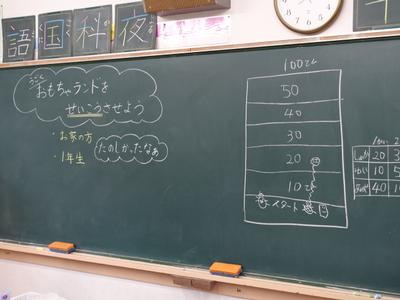 語 国 科 夜
うごく
おもちゃランドを
せいこうさせよう
・お家の方
・1年生
たのしかったなぁ
100てん
50
40
30
20
10てん
スタート
20 3
10 5
40 1